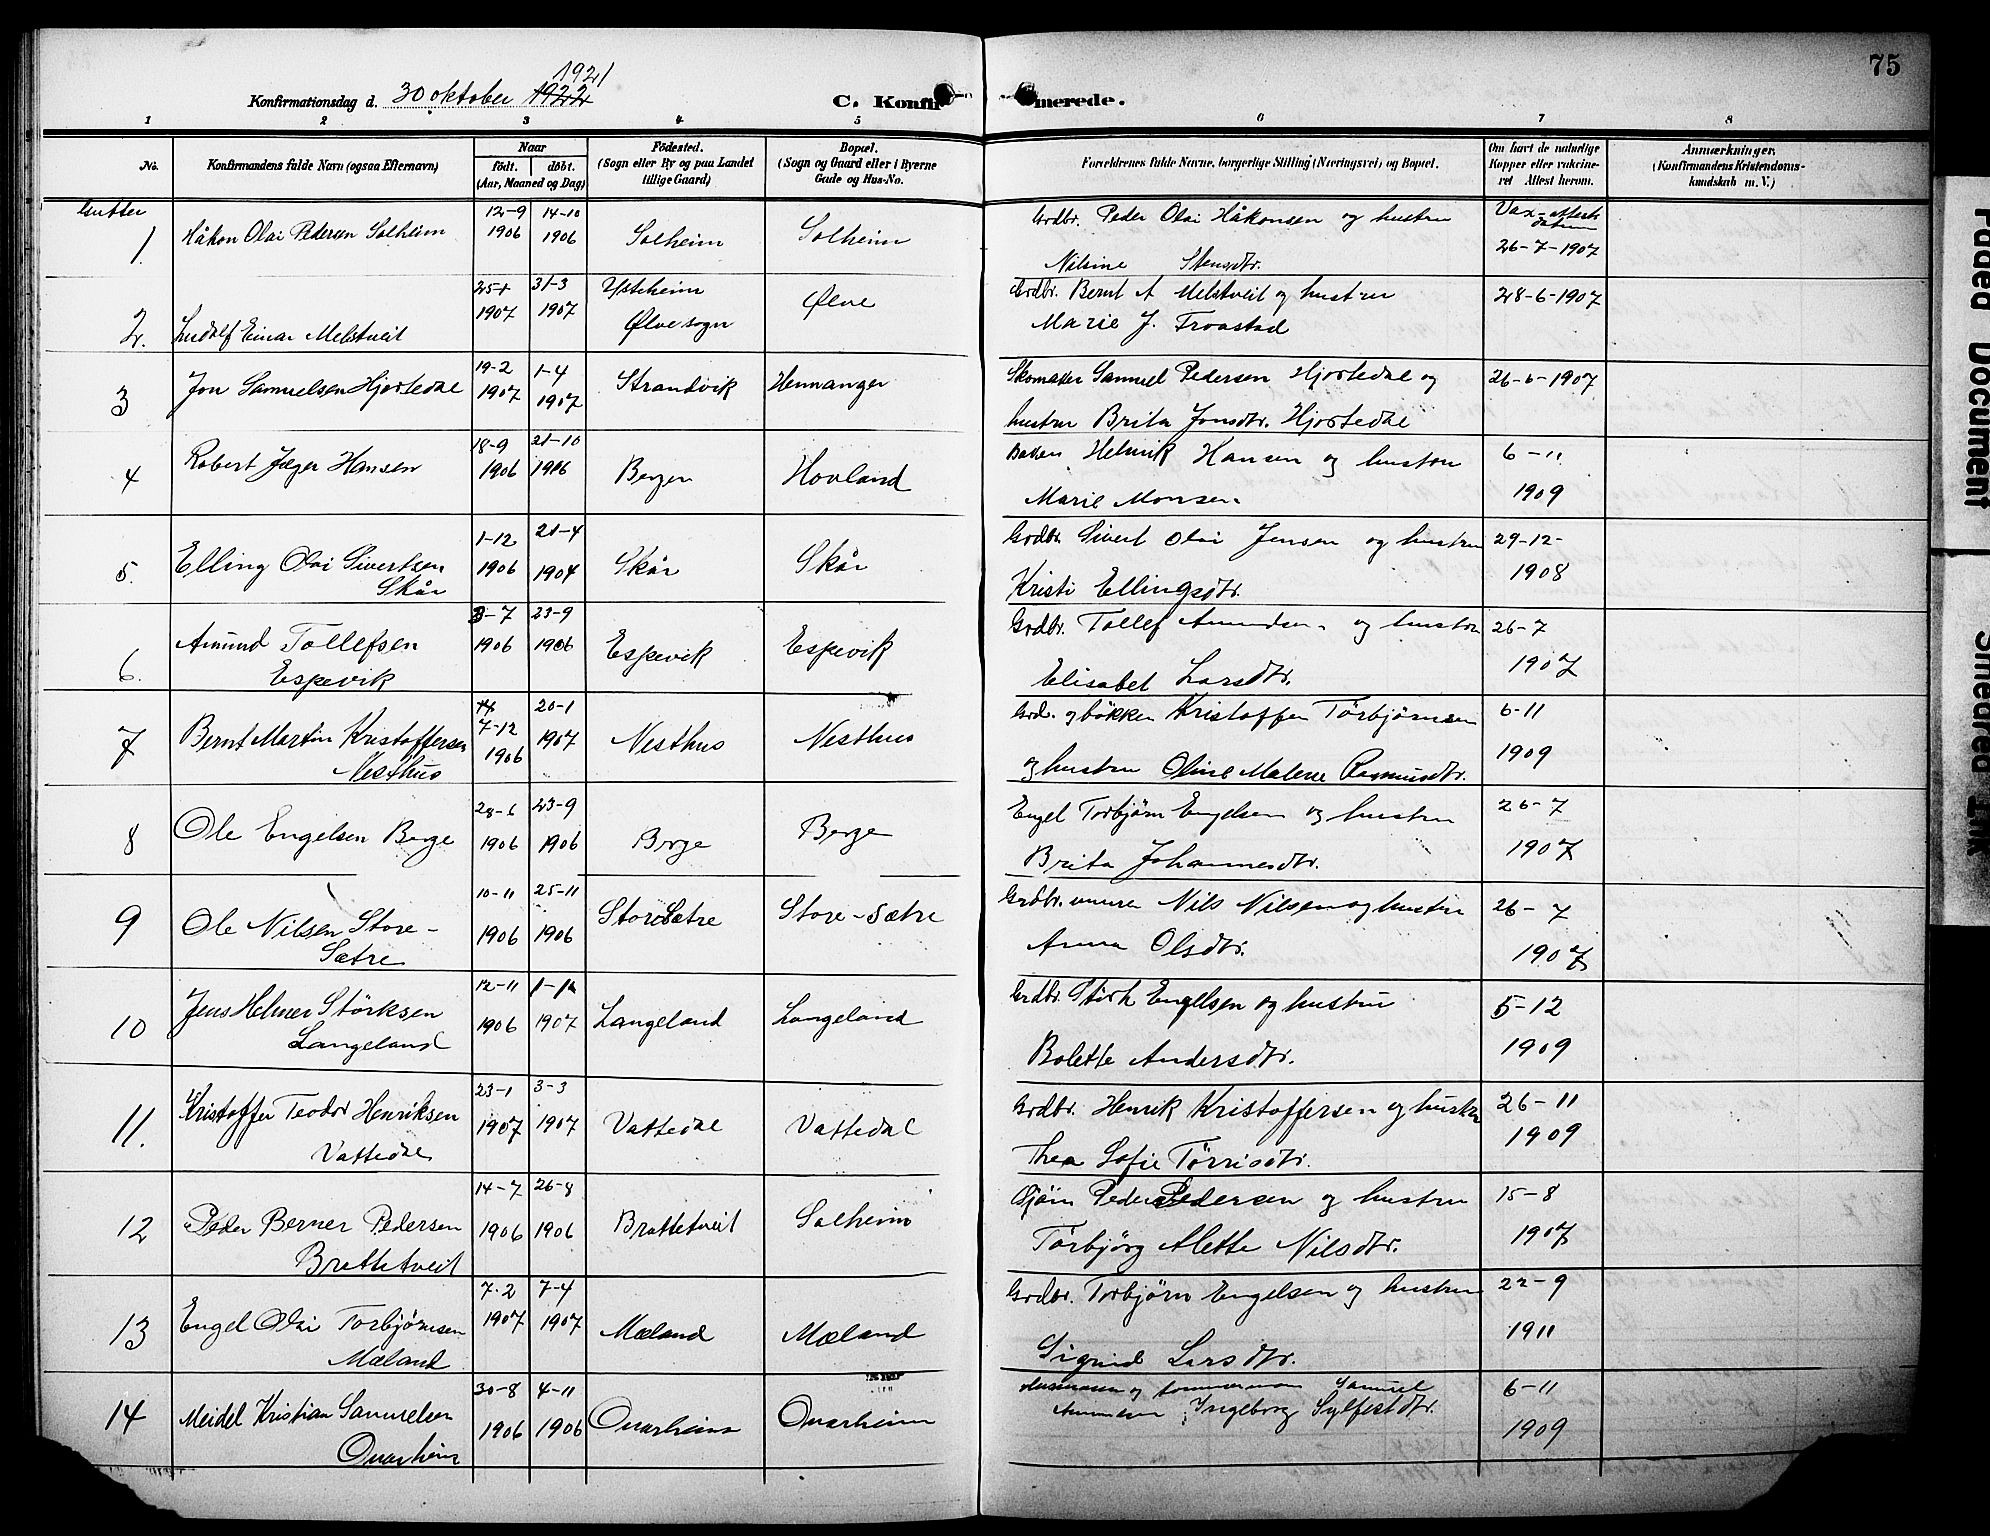 75
1921
Konfirmationsdag d. 30 oktober 1922
C. Konfir
merede.
1 2 3 4 5 6 7 8
No.
Konfirmandens fulde Navn (ogsaa Efternavn)
Naar
født. døbt.
(Aar, Maaned og Dag)
Fødested.
(Sogn eller By og paa Landet
tillige Gaard)
Bopæl.
(Sogn og Gaard eller i Byerne
Gade og Hus-No.
Forældrenes fulde Navne, borgerlige Stilling (Næringsvei) og Bopæl.
Om havt de naturlige
Kopper eller vakcine-
ret Attest herom.
Anmærkninger.
(Konfirmandens Kristendoms-
kundskab m. V.)
Gutter
1. Håkon Olai Pedersen Solheim 12-9 1906 14-10 1906 Solheim Solheim Grdbr. Peder Olai Håkonsen og hustru
Nilsine Stensdtr. Vax-attest datum 26-7-1907
2. Ludolf Einar Melstveit 25-1 1907 31-3 1907 Ysteheim
Ølve sogn Ølve Grdbr. Bernt A Melstveit og hustru
Marie J. Troastad 28-6-1907
3 Jon Samuelsen Hjortedal 19-2 1907 1-4 1907 Strandvik Hennanger Skomaker Samuel Pedersen Hjortedal og
hustru Brita Jonsdtr. Hjortedal 26-6-1907
4 Robert Jæger Hansen 18-9 1906 21-10 1906 Bergen Hovland Helmik Hansen og hustru
Marie Monsen 6-11 1909
5. Elling Olai Sivertsen
Skår 1-12 1906 21-4 1904 Skår Skår Grdbr. Sivert Olai Jensen og hustru
Kristi Ellingsdtr. 29-12-1908
6. Amund Tollefsen
Espevik 3-7 1906 23-9 1906 Espevik Espevik Grdbr. Tollef Amundsen og hustru
Elisabet Larsdtr. 26-7 1907
7 Bernt Martin Kristoffersen
Nesthus 7-12 1906 20-1 1907 Nesthus Nesthus Grd. og bøkker Kristoffer Torbjørnsen
og hustru Oline Malene Rasmusdtr. 6-11 1909
8 Ole Engelsen Berge 28-6 1906 23-9 1906 Berge Berge Engel Torbjørn Engelsen og hustru
Brita Johannesdtr. 26-7 1907
9 Ole Nilsen Store-
Sætre 10-11 1906 25-11 1906 Store Sætre Store-Sætre Grdbr. Nils Nilsen og hustru
Anna Olsdtr. 26-7 1907
10 Jens Helmer Störksen
Langeland 12-11 1906 1-1 1907 Langeland Langeland Grdbr. Störk Engelsen og hustru
Bolette Andersdtr. 5-12 1909
11. Kristoffer Teodor Henriksen
Vattedal 23-1 1907 3-3 1907 Vattedal Vattedal Grdbr. Henrik Kristoffersen og hustru
Thea Sofie Tørrisdtr. 26-11 1909
12 Peder Berner Pedersen
Brattetveit 14-7 1906 26-8 1906 Brattetveit Solheim Peder Pedersen og hustru
Torbjørg Alette Nilsdtr. 15-8 1907
13 Engel Olai Torbjørnsen
Mæland 7-2 1907 7-4 1907 Mæland Mæland Grdbr. Torbjørn Engelsen og hustru
Sigrid Larsdtr. 22-9 1911
14 Meidel Kristian Samuelsen
Qvarheim 30-8 1906 4-11 1906 Qvarheim Qvarheim Husmann og tømmermann Samuel
Ingeborg Sylfestdtr. 6-11 1909
Faded Document
Smeared Ink